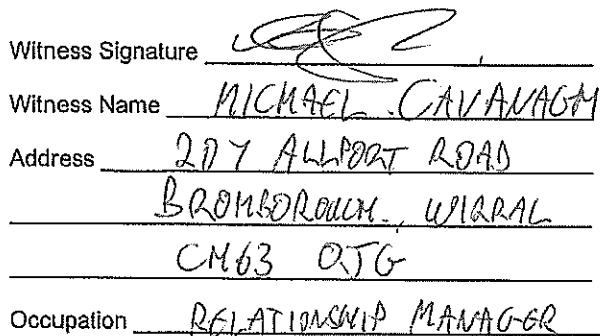 Witness Signature
Witness Name MICHAEL CAVANAGH
Address 207 ALLPORT ROAD
BROMBOROUGH, WIRRAL
CH63 0JG
Occupation RELATIONSHIP MANAGER